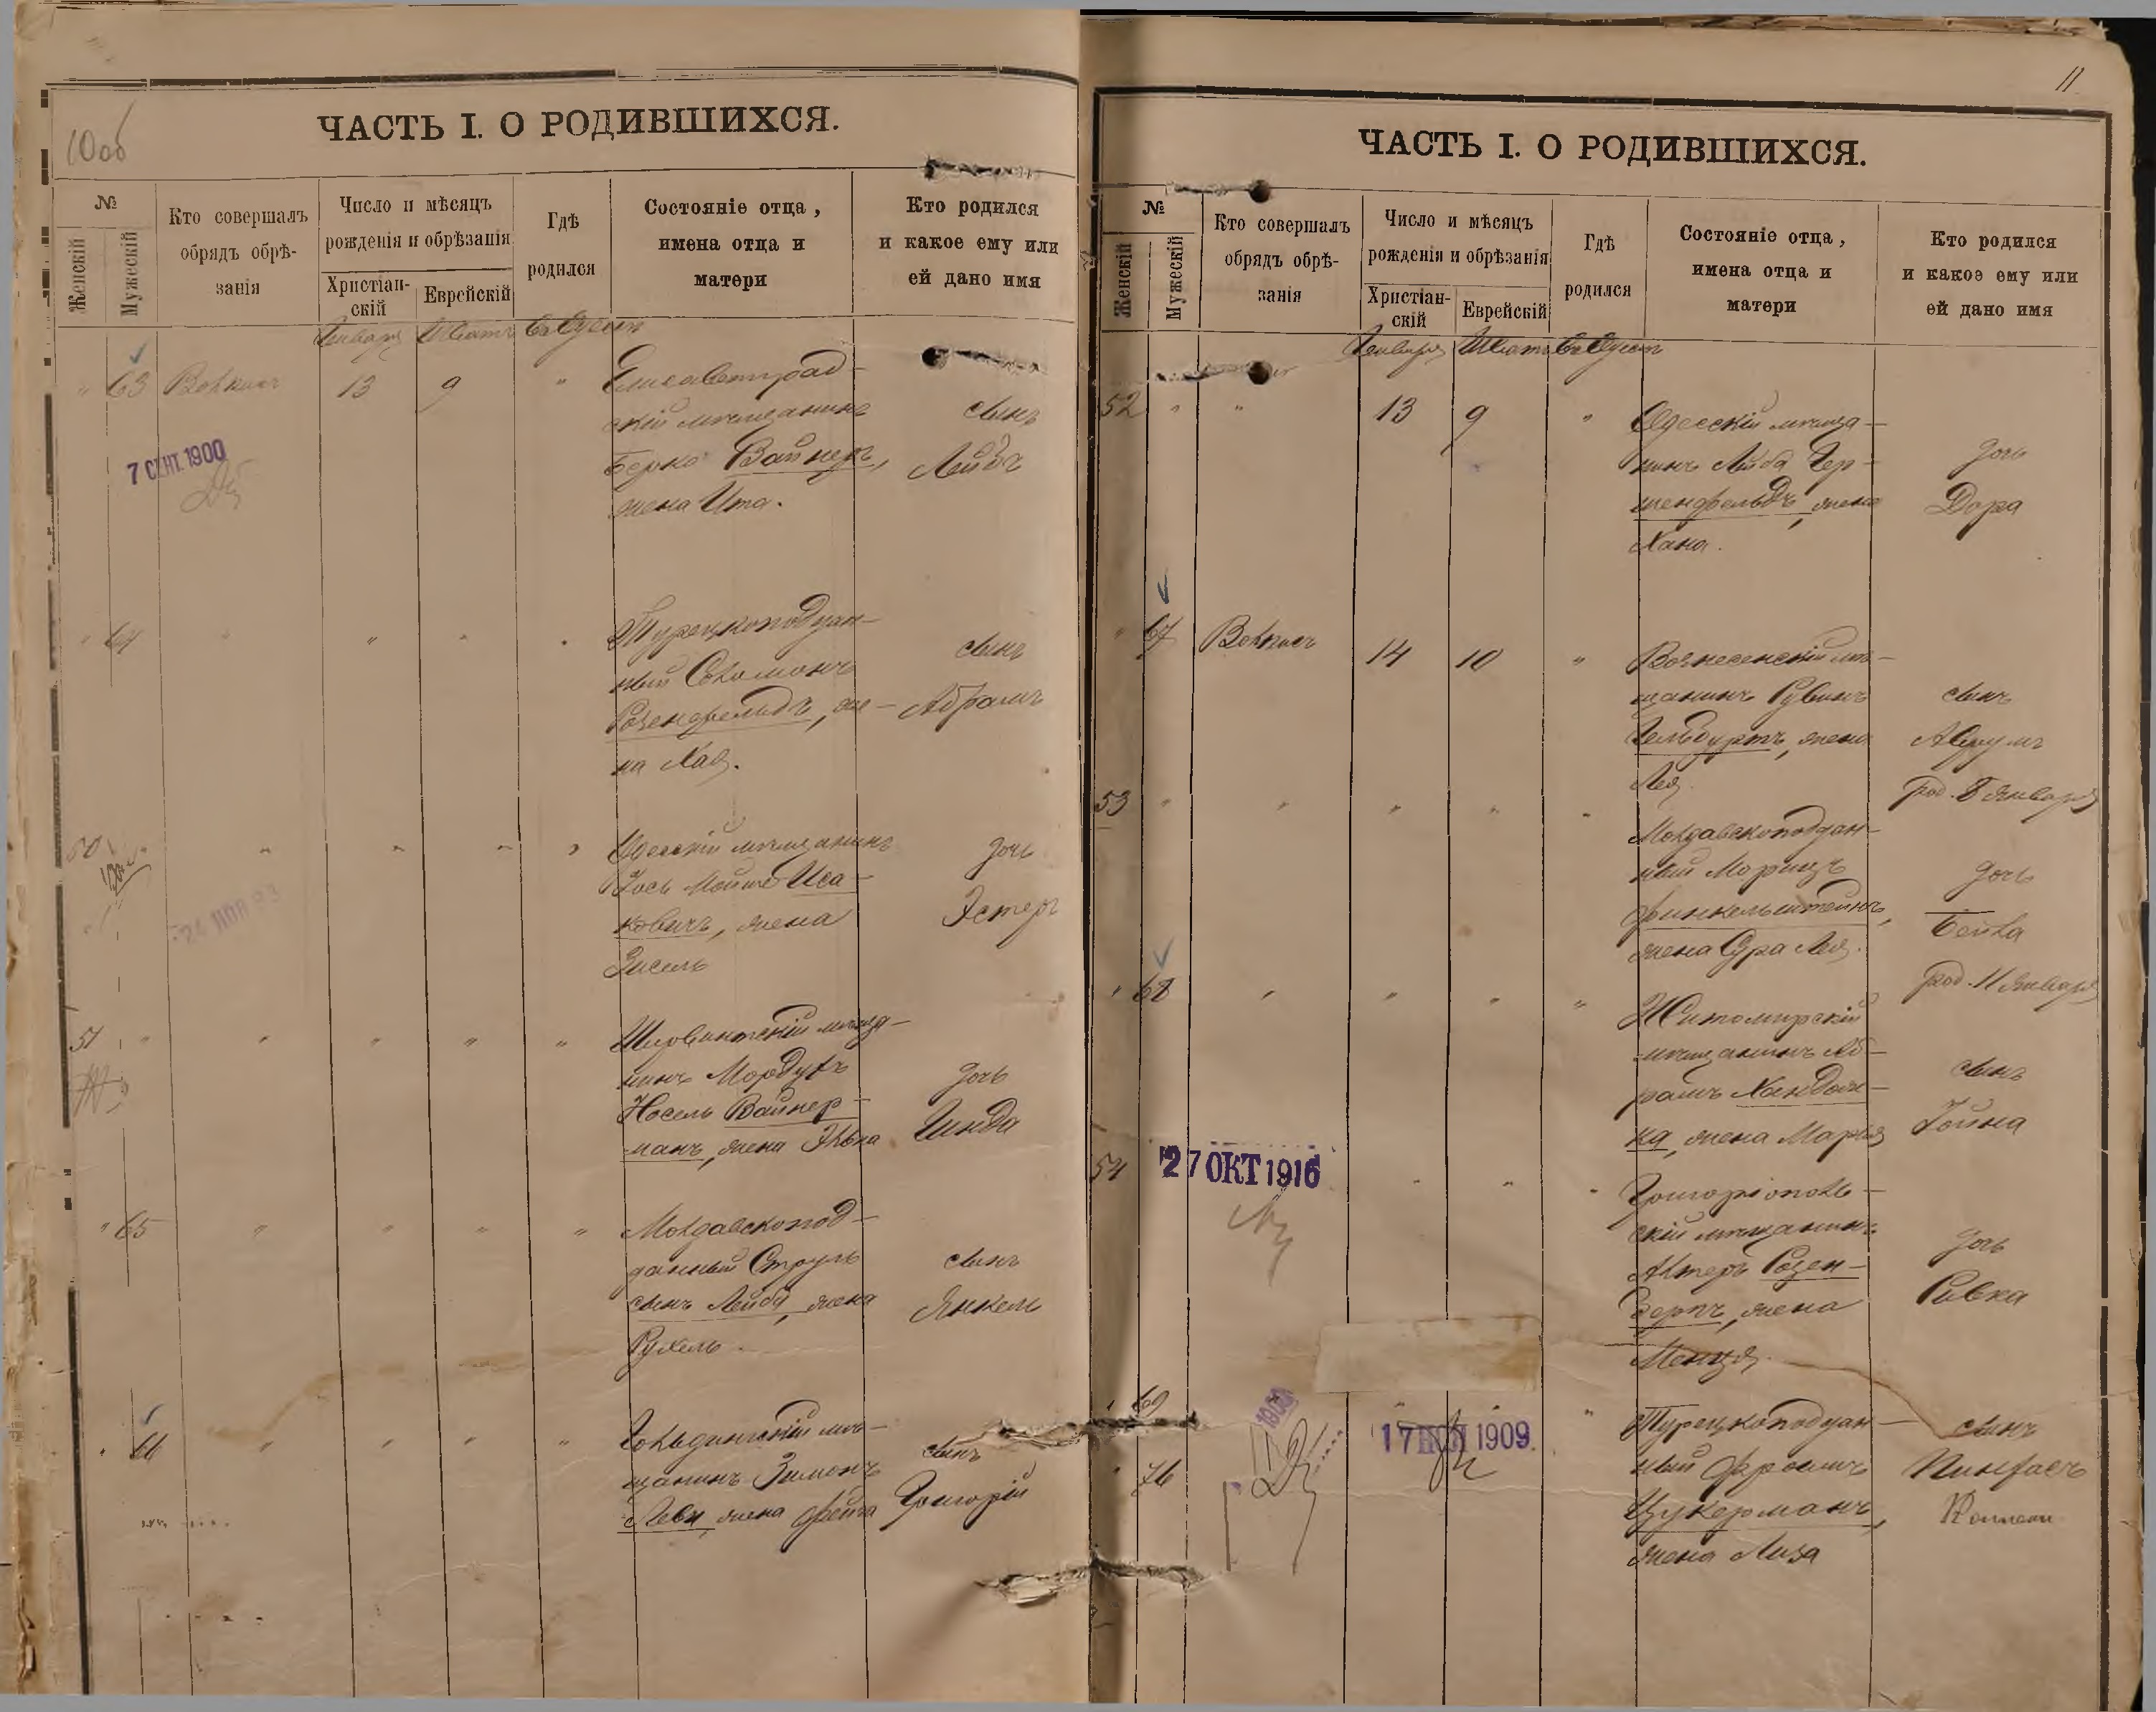 10об
ЧАСТЬ I. О РОДИВШИХСЯ.
№
Женскій
Мужескій
Кто совершалъ
обрядъ обрѣ-
занія
Число и мѣсяцъ
рожденія и обрѣзанія
Христіан-
скій
Еврейскій
Гдѣ
родился
Состояніе отца,
имена отца и
матери
Кто родился
и какое ему или
ей дано имя
Января Шватъ Въ Одессѣ
" 63 13 9 "
Елисаветград-
скій мѣщанинъ
Берко Вайнеръ,
жена Ита.
сынъ
Лейбъ
7 СЕНТ. 1900
" 64 " " " "
Турецкоподдан-
ный Соломонъ
Розенфельдъ, же-
на Хая.
сынъ
Абрамъ
50
Одесскій мѣщанинъ
Іось Мойше Иса-
ковичъ, жена
Зисель
дочь
Эстеръ
51 " " " " "
мѣща-
нинъ Мордухъ
Носель Вайнер-
манъ, жена Элька
дочь
Гинда
" 65 " " " " "
Молдавскопод-
данный Струль
сынъ Лейба, жена
Рухель.
сынъ
Янкель
" 66 " " " " "
мѣ-
щанинъ Зимонъ
Леви, жена Фейга
сынъ
Григорій
11
ЧАСТЬ I. О РОДИВШИХСЯ.
№
Женскій
Мужескій
Кто совершалъ
обрядъ обрѣ-
занія
Число и мѣсяцъ
рожденія и обрѣзанія
Христіан-
скій
Еврейскій
Гдѣ
родился
Состояніе отца,
имена отца и
матери
Кто родился
и какое ему или
ей дано имя
Января Шватъ Въ Одессѣ
52 " " 13 9 "
Одесскій мѣща-
нинъ Лейба Гер-
шенфельдъ, жена
Хана.
дочь
Дора
" 67 14 10 "
Вознесенскій мѣ-
щанинъ Рувинъ
жена
Лея.
сынъ
Аврумъ
род. 8 Января
53 " " " " "
Молдавскоподдан-
ный Морицъ
Финкельштейнъ,
жена Сура Лея.
дочь
Бейла
род. 11 Января
" 68 " " " "
Житомирскій
мѣщанинъ Аб-
рамъ Хандож-
ка, жена Марья
сынъ
Іойна
54
27 ОКТ 1916
Григоріополь-
скій мѣщанинъ
Алтеръ Розен-
жена
дочь
Ривка
" 69
76
1900
17 1909
Турецкоподдан-
ный Фроимъ
Цукерманъ,
жена Лиза
сынъ
Пинхасъ